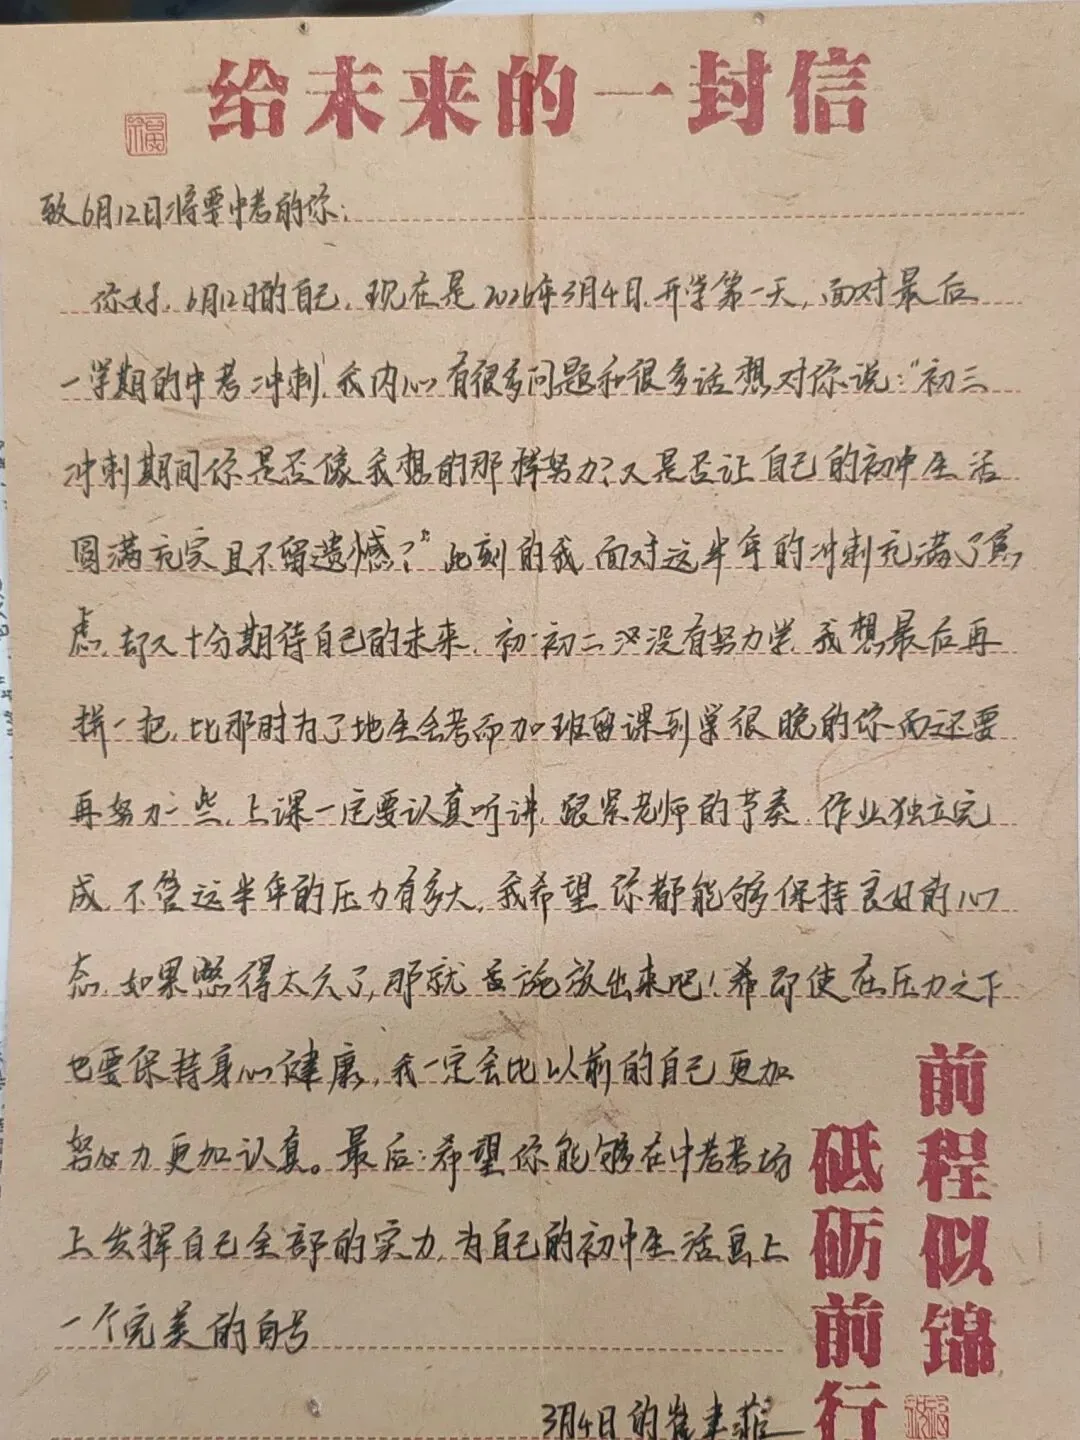 给未来的一封信
致6月12日将要中考的你：
你好，6月12日的自己，现在是2026年3月4日，开学第一天，面对最后
一学期的中考冲刺，我内心有很多问题和很多话想对你说："初三
冲刺期间你是否像我想的那样努力？又是否让自己的初中生活
圆满充实且不留遗憾？"此刻的我，面对这半年的冲刺充满了焦
虑，却又十分期待自己的未来，初一初二没有努力学，我想最后再
拼一把，比那时为了地生会考而加班留课到学很晚的你而还要
再努力一些，上课一定要认真听讲，跟紧老师的节奏，作业独立完
成，不管这半年的压力有多大，我希望你都能够保持良好的心
态，如果憋得太久了，那就释放出来吧！希即使在压力之下
也要保持身心健康，我一定会比以前的自己更加
努力更加认真。最后：希望你能够在中考考场
上发挥自己全部的实力，为自己的初中生活画上
一个完美的句号
3月4日的崔
前程似锦
砥砺前行